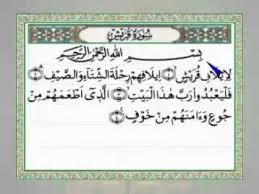 سُورَةُ قُرَيْشٍ
بِسْمِ اللَّهِ الرَّحْمَٰنِ الرَّحِيمِ
لِإِيلَافِ قُرَيْشٍ ۝١ إِيلَافِهِمْ رِحْلَةَ الشِّتَاءِ وَالصَّيْفِ ۝٢
فَلْيَعْبُدُوا رَبَّ هَٰذَا الْبَيْتِ ۝٣ الَّذِي أَطْعَمَهُمْ مِنْ
جُوعٍ وَءَامَنَهُمْ مِنْ خَوْفٍ ۝٤